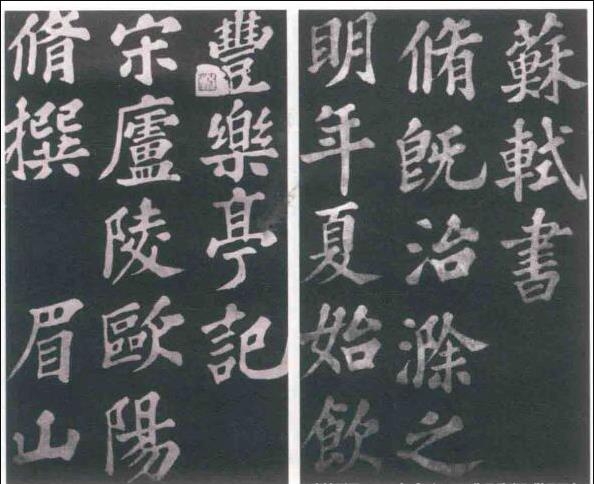 豐樂亭記
宋廬陵歐陽
脩撰 眉山
蘇軾書
脩既治滁之
明年夏始飲